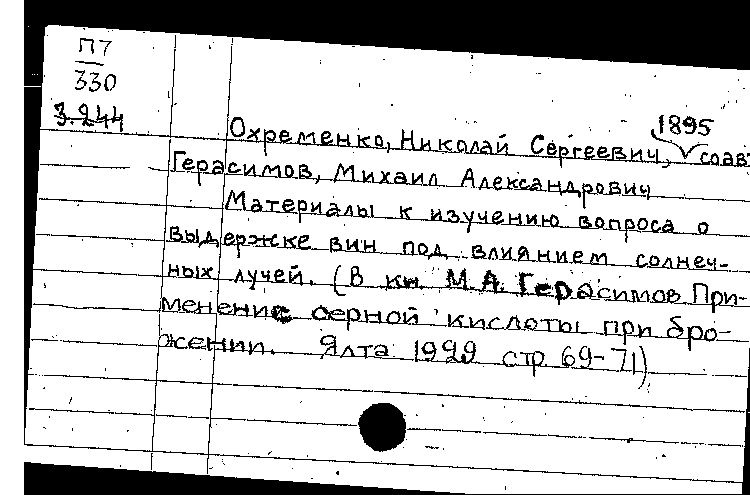 П7
330
3.244
1895
Охременко, Николай Сергеевич, соавт
Герасимов, Михаил Александрович
Материалы к изучению вопроса о
выдержке вин под влиянием солнеч-
ных лучей. (В кн. М.А. Герасимов При-
менение серной кислоты при бро-
жении. Ялта 1929 стр 69-71)